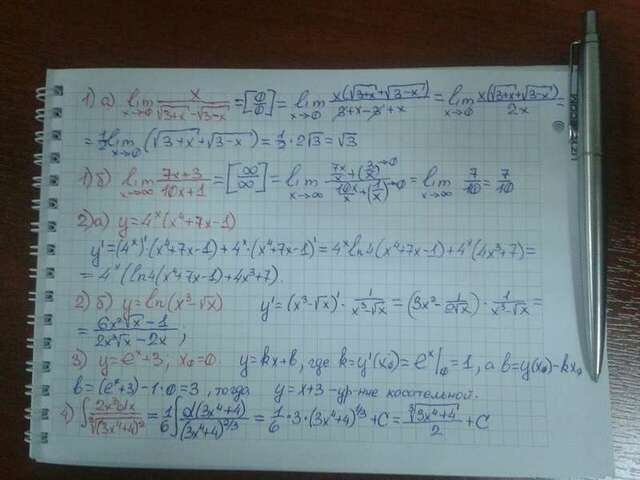 1) а) lim x→0 x/(√(3+x) - √(3-x)) = [0/0] = lim x→0 x(√(3+x) + √(3-x))/(3+x-3+x) = lim x→0 x(√(3+x) + √(3-x))/2x =
= 1/2 lim x→0 (√(3+x) + √(3-x)) = 1/2 · 2√3 = √3
1) б) lim x→∞ (7x+3)/(10x+1) = [∞/∞] = lim x→∞ (7x/x + (3/x)→0)/(10x/x + (1/x)→0) = lim x→∞ 7/10 = 7/10
2) а) y = 4ˣ(x⁴+7x-1)
y' = (4ˣ)'·(x⁴+7x-1) + 4ˣ·(x⁴+7x-1)' = 4ˣ ln4(x⁴+7x-1) + 4ˣ(4x³+7) =
= 4ˣ(ln4(x⁴+7x-1) + 4x³+7).
2) б) y = ln(x³-√x) y' = (x³-√x)' · 1/(x³-√x) = (3x² - 1/(2√x)) · 1/(x³-√x) =
= (6x²√x - 1)/(2x³√x - 2x) ;
3) y = eˣ+3; x₀=0. y = kx+b, где k = y'(x₀) = eˣ|₀ = 1, а b = y(x₀) - kx₀
b = (e⁰+3) - 1·0 = 3, тогда y = x+3 - ур-ние касательной.
4) ∫ 2x³dx/∛(3x⁴+4)² = 1/6 ∫ d(3x⁴+4)/(3x⁴+4)^(2/3) = 1/6 · 3 · (3x⁴+4)^(1/3) + C = ∛(3x⁴+4)/2 + C